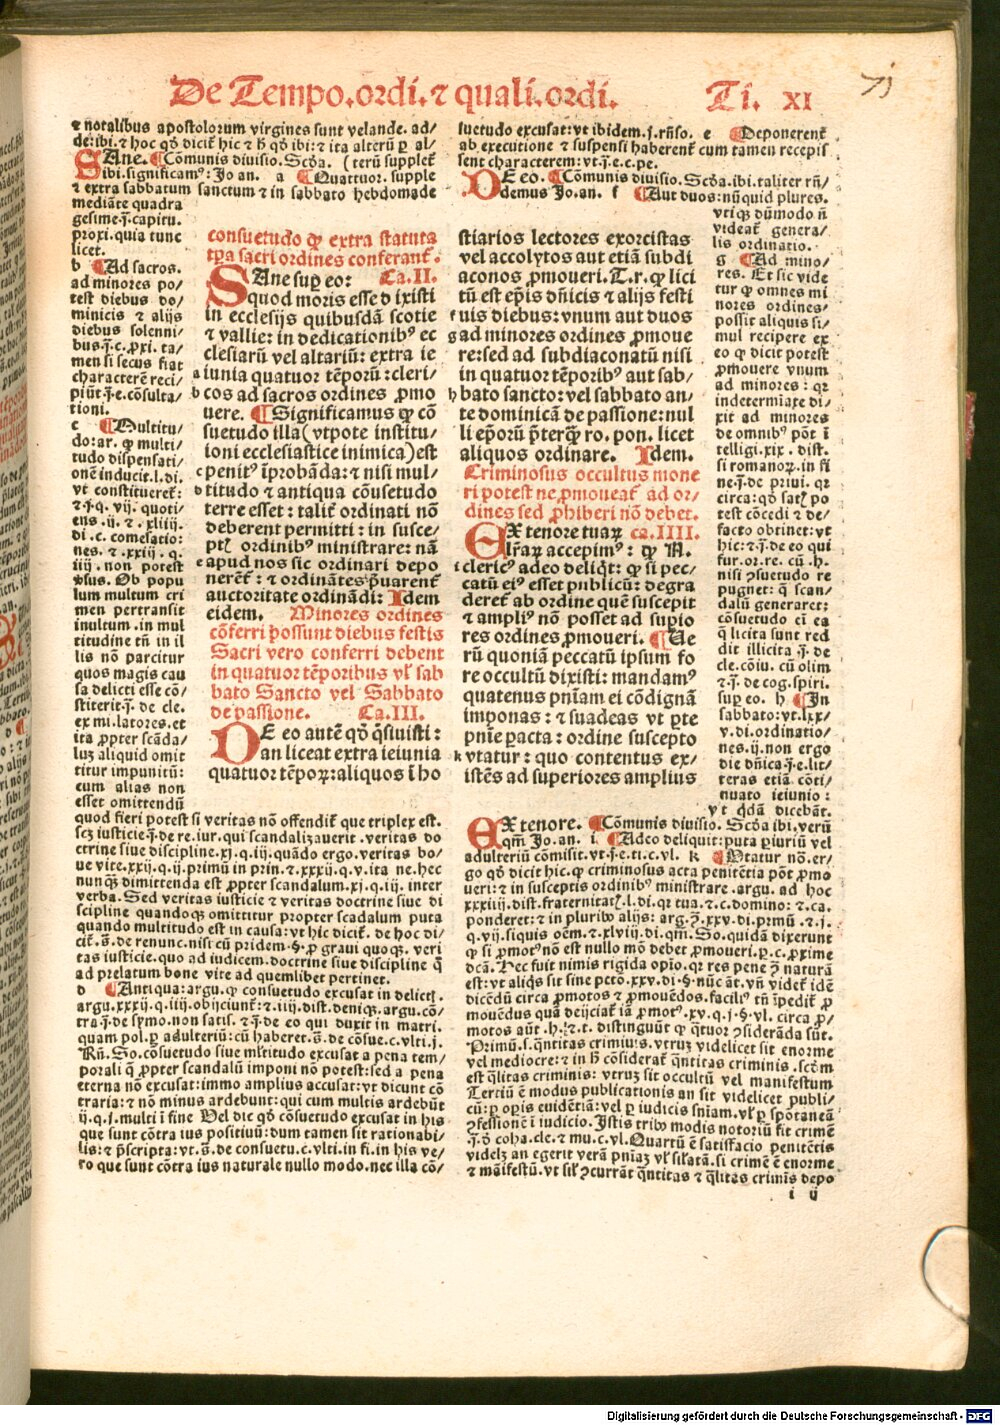 De Tempo.ordi.⁊ quali.ordi. Ti. XI
71
⁊ notalibus apostolorum virgines sunt velande. ad/
de: ibi. ⁊ hoc qđ dicit hic ⁊ ħ qđ ibi: ⁊ ita alterū ꝑ al⸗
SAne. ¶Cōmunis diuisio. Scđa. (terū supplet
ibi.significam⁹: Jo an. a ¶Quattuor. supple
⁊ extra sabbatum sanctum ⁊ in sabbato hebdomade
mediāte quadra
gesime.j̄.capitu.
proxi.quia tunc
licet.
b ¶Ad sacros.
ad minores po/
test diebus do/
minicis ⁊ alijs
diebus solenni/
bus.j̄.c.ꝓxi. ta/
men si secus fiat
characterē reci/
piūt.j̄.e.cōsulta/
tioni.
c ¶Multitu/
do: ar. ꝙ multi/
tudo dispensati/
onē inducit.l.di.
vt constitueret̄:
⁊.j̄.q. vij. quoti/
ens.ij. ⁊. xliiij.
di.c. comesatio/
nes. ⁊ .xxiij. q.
iiij. non potest
ꝟsus. Ob popu
lum multum cri
men pertransit
inultum .in mul
titudine tñ in il
lis nō parcitur
quos magis cau
sa delicti esse cō/
stiterit.j̄. de cle.
ex mi.latores.et
ita ꝓpter scāda/
luz aliquid omit
titur impunitū:
eum alias non
esset omittendū
quod fieri potest si veritas nō offendit̄ que triplex est.
scz iusticie.j̄.de re.iur.qui scandalizauerit .veritas do
ctrine siue discipline.xj.q.iij.quādo ergo.veritas bo/
ue vite.xxij.q.ij.primū in prin.⁊.xxij.q.v.ita ne.hec
nunqꝫ dimittenda est ꝓpter scandalum.xj.q.iij. inter
verba. Sed veritas iusticie ⁊ veritas doctrine siue di
scipline quandoqꝫ omittitur propter scādalum puta
quando multitudo est in causa:vt hic dicit̄. de hoc di/
cit̄. s̄. de renunc.nisi cū pridem.§.ꝑ graui quoqꝫ. veri
tas iusticie.quo ad iudicem.doctrine siue discipline q̄
ad prelatum bone vite ad quemlibet pertinet.
d ¶Antiqua:argu.ꝙ consuetudo excusat in delict̄.
argu.xxxij.q.iiij.obijciunt̄:⁊.iiij.dist.deniqꝫ.argu.cō/
tra.j̄.de symo.non satis. ⁊.j̄.de eo qui duxit in matri.
quam pol.ꝑ adulteriū:cū haberet.s̄.de cōsue.c.vlti.j.
Rñ. So.cōsuetudo siue mltitudo excusat a pena tem/
porali q̄ ꝓpter scandalū imponi nō potest:sed a pena
eterna nō excusat:immo amplius accusat:vt dicunt cō
traria: ⁊ nō minus ardebunt:qui cum multis ardebūt
ij.q.j.multi i fine Vel dic qđ cōsuetudo excusat in his
que sunt cōtra ius positiuū:dum tamen sit rationabi/
lis:⁊ p̄scripta:vt.s̄.de consuetu.c.vlti.in fi.in his ve/
ro que sunt cōtra ius naturale nullo modo.nec illa cō/
consuetudo ꝙ extra statuta
tꝑa sacri ordines conferant̄.
SAne suꝑ eo: Ca.II.
quod moris esse dixisti
in ecclesijs quibusdā scotie
⁊ vallie: in dedicationib⁹ ec
clesiarū vel altariū: extra ie
a iunia quatuor tēporū:cleri/
b cos ad sacros ordines ꝓmo
uere. ¶Significamus ꝙ cō
suetudo illa (vtpote institu/
ioni ecclesiastice inimica) est
c penit⁹ īprobāda: ⁊ nisi mul/
d titudo ⁊ antiqua cōusetudo
terre esset: talit̄ ordinati nō
deberent permitti: in susce/
pt̄ ordinib⁹ ministrare: nā
e apud nos sic ordinari depo
nerēt̄: ⁊ ordinātes p̄uarent̄
auctoritate ordinādi: Idem
eidem. Minores ordines
cōferri possunt diebus festis
Sacri vero conferri debent
in quatuor tēporibus vl̄ sab
bato Sancto vel Sabbato
de passione. Ca.III.
DE eo autē qđ q̄siuisti:
an liceat extra ieiunia
quatuor tēpoꝝ:aliquos ī ho
suetudo excusat:vt ibidem.j.rñso. e ¶Deponerent̄
ab executione ⁊ suspensi haberent̄ cum tamen recepis
sent characterem:vt.j̄.e.c.pe.
DE eo. ¶Cōmunis diuisio. Scđa.ibi.taliter rñ/
demus Jo.an. f ¶Aut duos:nūquid plures.
vtiqꝫ dūmodo ñ
videat̄ genera/
lis ordinatio.
g ¶Ad mino/
res. Et sic vide
tur ꝙ omnes mi
nores ordines
possit aliquis si/
mul recipere ex
eo ꝙ dicit potest
ꝓmouere vnum
ad minores : qꝛ
indetermiate di/
xit ad minores
de omnib⁹ pōt ī
telligi.xix . dist.
si romanoꝝ.in fi
ne.j̄.de priui. qꝛ
circa:qđ sat̄ po
test cōcedi ⁊ de/
facto obtinet:vt
hic: ⁊.j̄.de eo qui
fur.or.re. cū .h.
nisi ꝯsuetudo re
pugnet: q̄ scan/
dalū generaret:
cōsuetudo eī ea
q̄ licita sunt red
dit illicita .j̄. de
cle.cōiu. cū olim
⁊.j̄. de cog.spiri.
suꝑ eo. h ¶In
sabbato:vt.lxx/
v.di.ordinatio/
nes.ij.non ergo
die dñica.j̄.e.lit/
teras etiā cōti/
nuato ieiunio:
vt qdā dicebāt.
stiarios lectores exorcistas
vel accolytos aut etiā subdi
aconos ꝓmoueri.T.r.ꝙ lici
tū est ep̄is dñicis ⁊ alijs festi
f uis diebus: vnum aut duos
g ad minores ordines ꝓmoue
re:sed ad subdiaconatū nisi
in quatuor tēporib⁹ aut sab/
h bato sancto:vel sabbato an/
te dominicā de passione:nul
li ep̄orū p̄terq̄ȝ ro. pon. licet
aliquos ordinare. Idem.
Criminosus occultus mone
ri potest ne ꝓmoueat̄ ad or/
dines sed ꝓhiberi nō debet.
EX tenore tuaꝝ ca.IIII.
lr̄aꝝ accepim⁹: ꝙ A.
i cleric⁹ adeo deliq̄t: ꝙ si pec/
catū ei⁹ esset publicū: degra
deret̄ ab ordine quē suscepit
⁊ ampli⁹ nō posset ad supio
res ordines ꝓmoueri. ¶Ue
rū quoniā peccatū ipsum fo
re occultū dixisti: mandam⁹
quatenus pñiam ei cōdignā
imponas: ⁊ suadeas vt ꝑte
pnīe ꝑacta: ordine suscepto
k vtatur: quo contentus ex/
istēs ad superiores amplius
EX tenore. ¶Cōmunis diuisio. Scđa ibi.verū
qm̄ Jo.an. i. ¶Adeo deliquit:puta ꝑiuriū vel
adulteriū cōmisit.vt.j̄.e.ti.c.vl. k ¶Utatur nō.er/
go qđ dicit hic.ꝙ criminosus acta penitētia pōt ꝓmo
ueri:⁊ in susceptis ordinib⁹ ministrare .argu. ad hoc
xxxiiij.dist.fraternitat̄.l.di.qꝛ tua.⁊.c.domino: ⁊.ca.
ponderet:⁊ in plurib⁹ alijs: arg.ꝯ.xxv.di.primū .⁊.j.
q.vij.siquis oēm.⁊.xlviij.di.qm̄. So.quidā dixerunt
ꝙ si ꝓmot⁹ nō est nullo mō debet ꝓmoueri.ꝑ.c.ꝓxime
dcā. Hec fuit nimis rigida opio.qꝛ res pene ꝯ̄ naturā
est:vt aliq̄s sit sine pctō.xxv.di.§.nūc āt.vn̄ videt̄ idē
dicēdū circa ꝓmotos ⁊ ꝓmouēdos.facili⁹ tñ īpedit̄ ꝓ
mouēdus quā deijciat̄ iā ꝓmot⁹.xv.q.j.§.vl. circa ꝓ/
motos aūt .h.⁊.t. distinguūt ꝙ q̄tuor ꝯsiderāda sūt.
Primū.s.q̄ntitas crimīs.vtruꝫ videlicet sit enorme
vel mediocre:⁊ in ħ cōsiderat̄ q̄ntitas criminis .scđm
est q̄litas criminis: vtruꝫ sit occultū vel manifestum
Tertiū ē modus publicationis an sit videlicet publi/
cū: ꝑ opis euidētiā:vel ꝑ iudicis sniam.vl̄ ꝑ spōtaneā
ꝯfessionē ī iudicio. Istis trib⁹ modis notoriū fit crimē
.j̄.đ coha.cle.⁊ mu.c.vl.Quartū ē satisfacio penitētis
videlꝫ an egerit verā pnīaꝫ vl̄ sil̄atā.si crimē ē enorme
⁊ māifestū.vt sil̄ ꝯcurrāt q̄ntitas ⁊ q̄litas crimīs depo
i ij
Digitalisierung gefördert durch die Deutsche Forschungsgemeinschaft - DFG